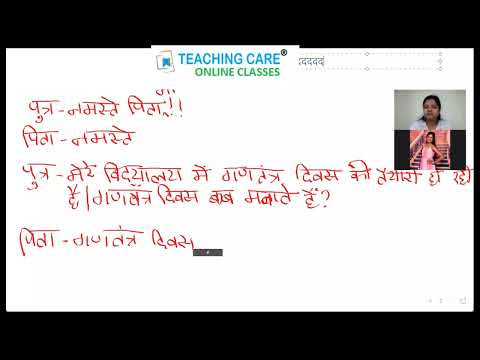 TEACHING CARE®
ONLINE CLASSES
ददददद
पुत्र - नमस्ते पिताजी!
पिता - नमस्ते
पुत्र - मेरे विद्यालय में गणतंत्र दिवस की तैयारी हो रही
है। गणतंत्र दिवस कब मनाते हैं?
पिता - गणतंत्र दिवस